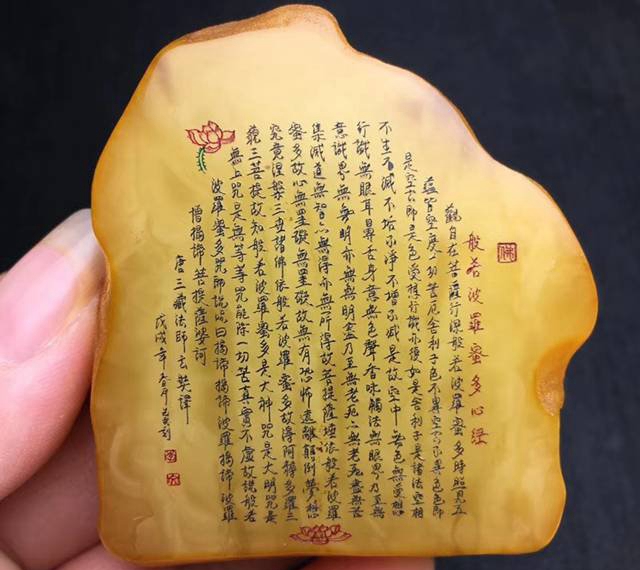 佛
般若波羅蜜多心經
觀自在菩薩行深般若波羅蜜多時照見五
蘊皆空度一切苦厄舍利子色不異空空不異色色即
是空空即是色受想行識亦復如是舍利子是諸法空相
不生不滅不垢不淨不增不減是故空中無色無受想
行識無眼耳鼻舌身意無色聲香味觸法無眼界乃至無
意識界無無明亦無無明盡乃至無老死亦無老死盡無苦
集滅道無智亦無得以無所得故菩提薩埵依般若波羅
蜜多故心無罣礙無罣礙故無有恐怖遠離顛倒夢想
究竟涅槃三世諸佛依般若波羅蜜多故得阿耨多羅三
藐三菩提故知般若波羅蜜多是大神咒是大明咒是
無上咒是無等等咒能除一切苦真實不虛故說般若
波羅蜜多咒即說咒曰揭諦揭諦波羅揭諦波羅
僧揭諦菩提薩婆訶
唐三藏法師玄奘譯
戊戌年刻